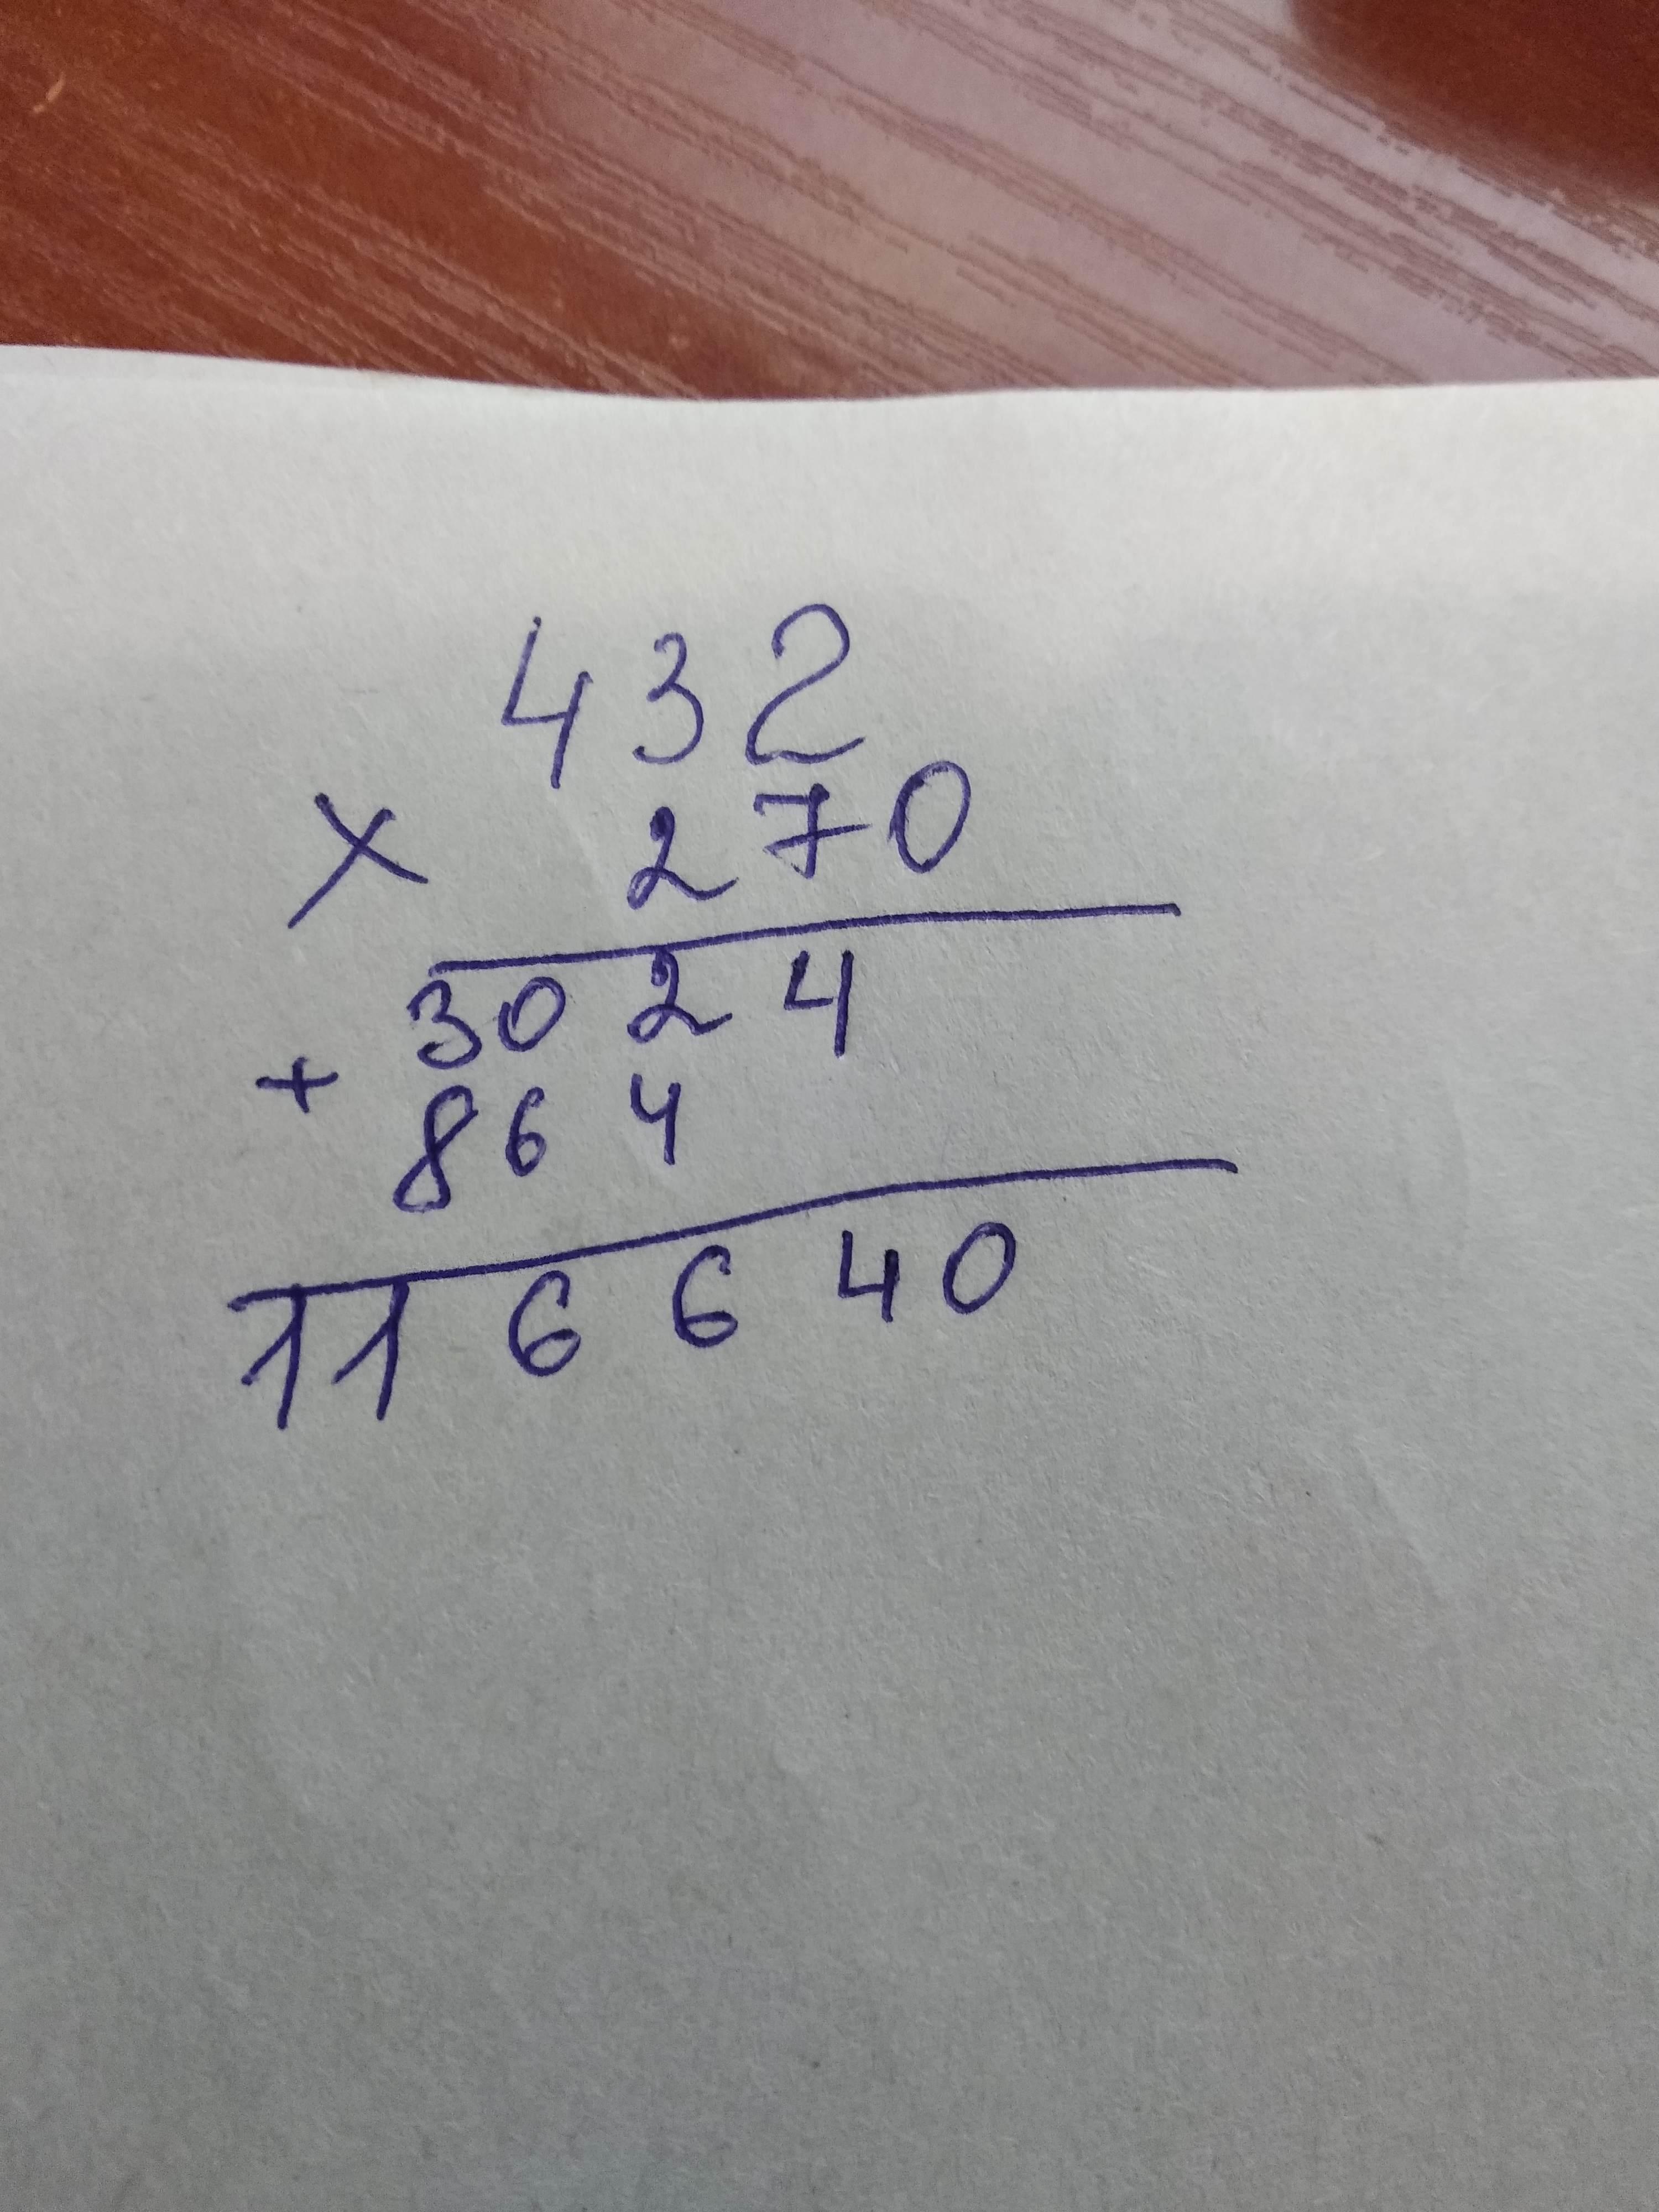 432
× 270
3024
+ 864
116640